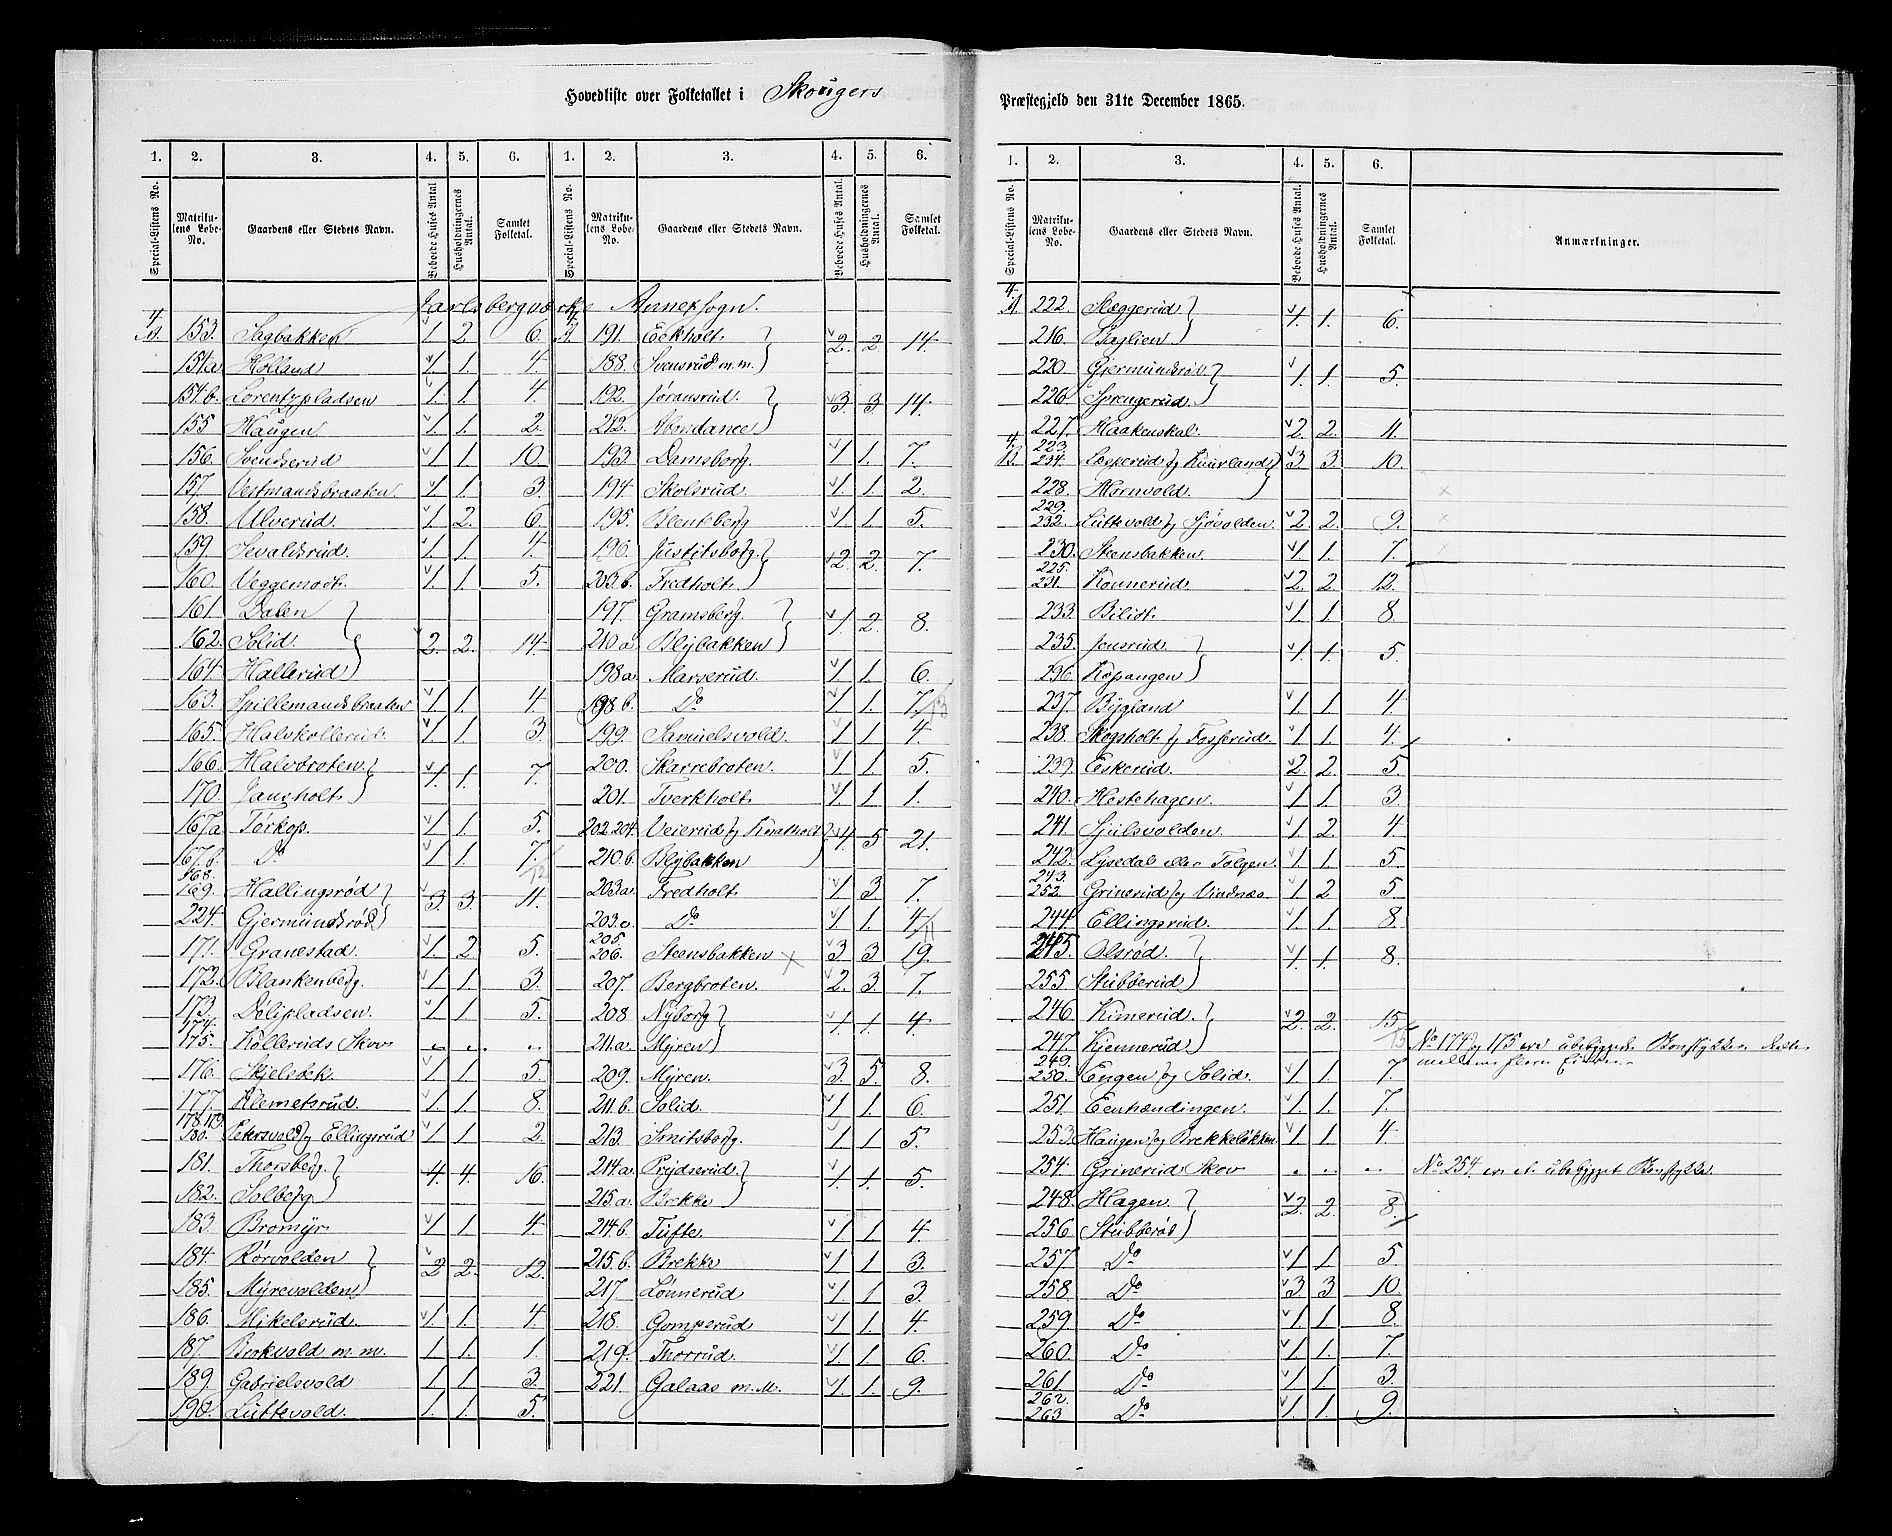 Hovedliste over Folketallet i Skougers Præstegjeld den 31te December 1865.
1. 2. 3. 4. 5. 6. 1. 2. 3. 4. 5. 6.
Special-Listens No. Matrikulens Løbe-No. Gaardens eller Stedets Navn. Beboede Huses Antal. Husholdningernes Antal. Samlet Folketal. Special-Listens No. Matrikulens Løbe-No. Gaardens eller Stedets Navn. Beboede Huses Antal. Husholdningernes Antal. Samlet Folketal.
Jarlsbergværks Annexsogn.
4. A. 153. Sagbakken 1. 2 6.
154a Holland 1. 1. 4.
154.b. Lorentzpladsen 1. 1. 4.
155 Haugen 1. 1. 2.
156. Svendserud 1. 1. 10.
157. Vestmandsbraaten 1. 1. 3.
158. Ulverud. 1. 2. 6.
159. Sevaldsrud. 1. 1. 4.
160. Veggemoet. 1. 1. 5.
161. Dalen
162. Solid. 2. 2. 14.
164. Hallerud
163. Spillemandsbraaten 1. 1. 4
165. Halvkollerud 1. 1. 3.
166. Halvbroten.
170. Jansholt 1. 1. 7.
167a Torkop. 1. 1. 5.
167b. Do 1. 1. 7. /12
168. 169. Hallingsrød
224. Gjermundsrød 3. 3. 11.
171. Granestad. 1. 2 5.
172. Blankenberg. 1. 1. 3.
173. Dölipladsen. 1. 1. 5.
174. 175. Kolleruds Skov " " "
176. Skjelsbek. 1. 1. 5.
177. Klemetsrud. 1. 1. 8.
178. 179. 180. Petersvold og Ellingsrud 1. 1 2.
181. Thorsberg.
182. Solberg. 4. 4. 16.
183. Bromyr. 1. 1 4.
184. Rørvolden
185. Myrevolden 2 2. 12.
186. Mikelsrud. 1. 1. 4.
187. Berkvold m. m. 1. 1. 1.
189. Gabrielsvold 1. 1. 3.
190. Luttevold. 1. 1. 5.
A. 191. Eekholt.
188. Svensrud m.m. 2. 2 14.
192. Jøransrud.
212. Abondance 3. 3. 14.
193. Damsborg. 1. 1. 7.
194. Skolsrud. 1. 1. 2.
195. Blenkberg 1. 1. 5.
196. Justitsborg.
203.b. Fredholt. 2. 2. 7.
197. Gramsberg.
210 a Blybakken 1. 2. 8.
198a. Marserud. 1. 1. 6.
198b. Do 1. 1. 7. /13
199. Samuelsvold. 1. 1. 4.
200. Skarrebroten. 1. 1. 5.
201. Tverkholt. 1. 1. 1.
202.204. Veierud og Knatholt
210.b. Blybakken 4. 5 21.
203a. Fredholt. 1. 3. 7.
203.c. Do 1. 1. 4. /11
205. 206. Steensbakken 3. 3 19.
207. Bergbroten. 2. 3. 7.
208 Nyborg
211.a. Myren 1. 1. 4.
209. Myren. 3. 5. 8.
211.b. Solid. 1. 1. 6.
213. Smitsborg. 1. 1. 5.
214.a. Prydserud
215.a. Brekke 1. 1. 5.
214.b. Tufte. 1. 1 4.
215.b. Brekke 1. 1. 3.
217. Lønnerud 1. 1. 3.
218. Gomperud. 1. 1. 4.
219. Thorrud. 1. 1. 6.
221. Galaas m. M. 1. 1. 9.
1. 2. 3. 4. 5. 6.
Special-Listens No. Matrikulens Løbe-No. Gaardens eller Stedets Navn. Beboede Huses Antal. Husholdningernes Antal. Samlet Folketal. Anmærkninger.
4. A. 222. Skeggerud
216. Baglien 1. 1. 6.
220. Gjermundsrød.
226. Sprengerud. 1. 1. 5.
227. Haakenskal. 2. 2. 11.
4. B. 223. 234. Lesperud og Kuurland
228. Hornvold. 3. 3. 10.
229. 232. Luttevold og Sjøvolden. 2. 2. 9.
230. Steensbakken. 1. 1. 7.
225. 231. Konnerud. 2. 2. 12.
233. Bilidt. 1. 1 8.
235. Jonsrud.
236. Kopangen 1. 1. 5.
237. Bygland 1. 1. 4
238. Skogsholt og Fosserud. 1. 1. 4.
239. Eskerud. 2. 2. 5.
240. Hestehagen. 1. 1. 3.
241. Sjulsvolden. 1. 2. 4
242. Lysedal eller Tolgen. 1. 1. 5
243. 252. Grinerud og Vindnæs. 1. 2 5
244 Ellingsrud. 1. 1. 8.
245. Olsrød.
255. Stubberud 1. 1. 8.
246. Kimerud.
247. Kjennerud 2. 2. 15 /15 No 174 og 175 ere ubebyggede
249. 250. Engen og Solid. 1. 1. 7.
251. Eenhændingen. 1. 1. 7.
253. Haugen og Brekkeløkken 1. 1. 4.
254. Grinerud Skov " " " No 254 er et ubebygget
248. Hagen.
256. Stubberød 2. 2. 8.
257. Do 1. 1 5
258. Do 3. 3. 10.
259. Do 1. 1. 8.
260. Do 1. 1. 7.
261. Do 1. 1. 3.
262. 263 Do 1. 1. 9.